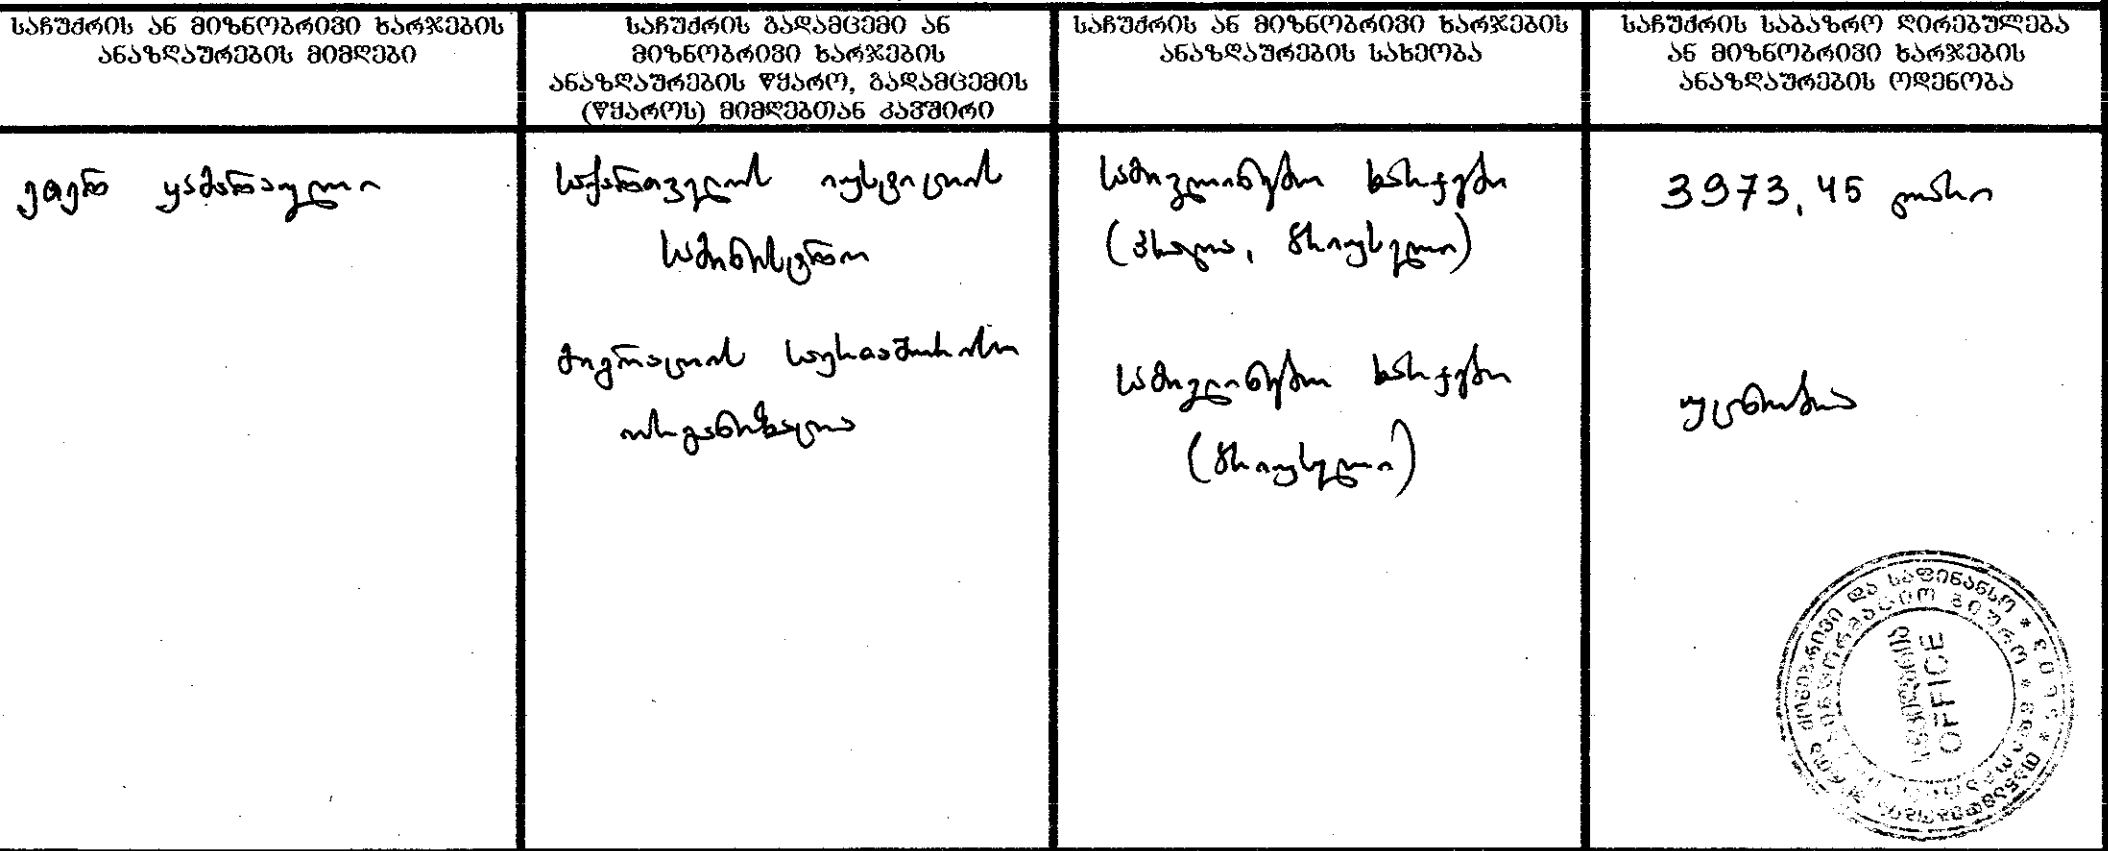 საჩუქრის ან მიზნობრივი ხარჯების
ანაზღაურების მიმღები
საჩუქრის გადამცემი ან
მიზნობრივი ხარჯების
ანაზღაურების წყარო, გადამცემის
(წყაროს) მიმღებთან კავშირი
საჩუქრის ან მიზნობრივი ხარჯების
ანაზღაურების სახეობა
საჩუქრის საბაზრო ღირებულება
ან მიზნობრივი ხარჯების
ანაზღაურების ოდენობა
საქართველოს იუსტიციის
სამინისტრო
სამივლინებო ხარჯები
(პრაღა, ბრიუსელი)
3973,45 ლარი
მიგრაციის საერთაშორისო
ორგანიზაცია
სამივლინებო ხარჯები
(ბრიუსელი)
უცნობია
OFFICE